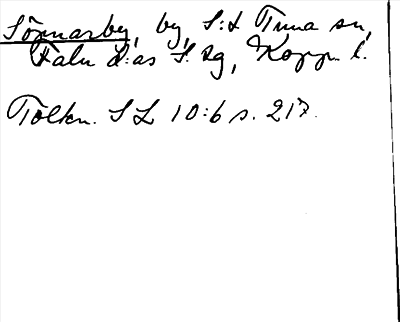 Sörnarby, by, S:t Tuna sn,
Falu d:as S. tg, Kopp. l.
Tolkn. SL 10:6 s. 217.